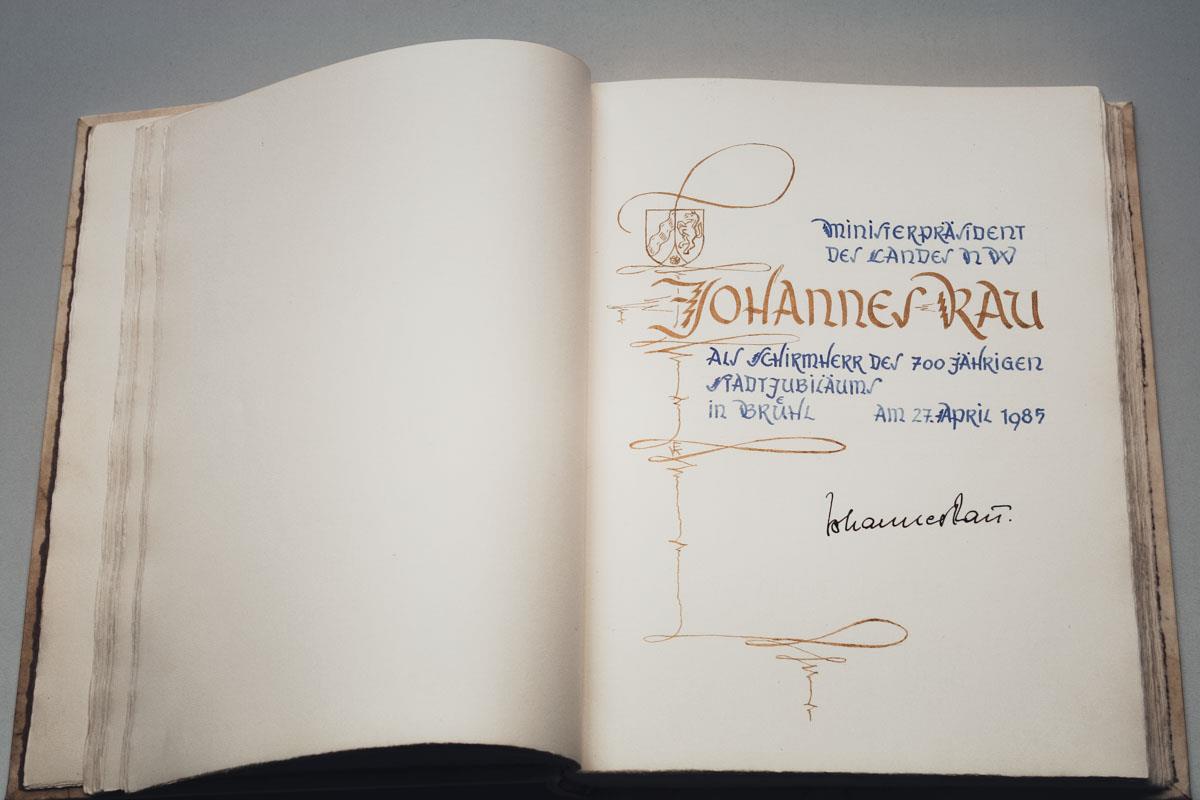 MINISTERPRÄSIDENT
DES LANDES NW
JOHANNES RAU
ALS SCHIRMHERR DES 700 JÄHRIGEN
STADTJUBILÄUMS
IN BRÜHL AM 27. APRIL 1985
Johannes Rau.